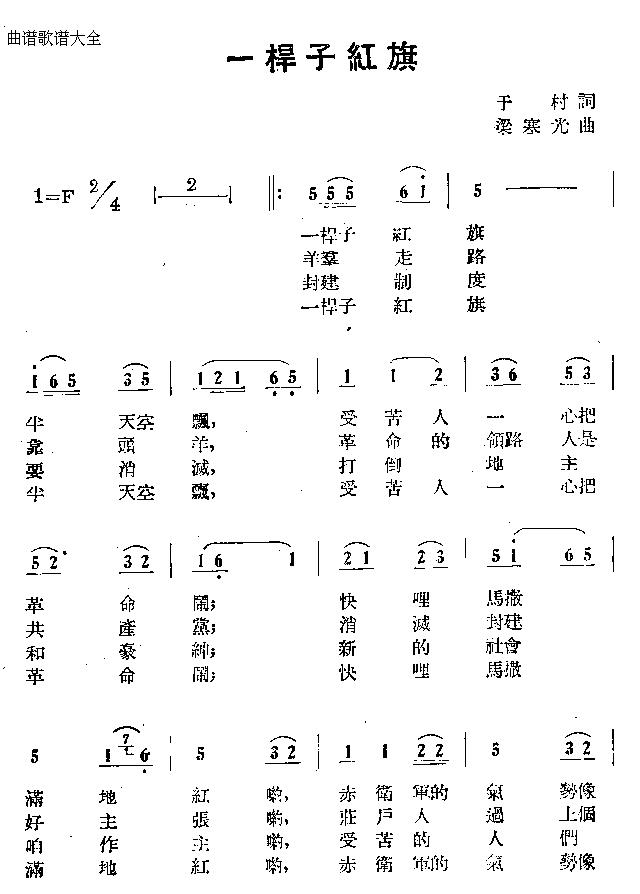 曲谱歌谱大全
一桿子紅旗
于 村 詞
梁寒光 曲
1=F 2/4 2 5 5 5 6 i 5
一桿子 紅 旗
羊羣 走 路
封建 制 度
一桿子 紅 旗
i 6 5 3 5 1 2 1 6 5 1 1 2 3 6 5 3
半 天空 飄， 受 苦 人 一 心把
靠 頭 羊， 革 命 的 領路 人是
要 消 滅， 打 倒 地 主
半 天空 飄， 受 苦 人 一 心把
5 2· 3 2 1 6 1 2 1 2 3 5 i 6 5
革 命 鬧； 快 哩 馬撒
共 產 黨； 消 滅 封建
和 豪 紳； 新 的 社會
革 命 鬧； 快 哩 馬撒
5 1 7 6 5 3 2 1 1 2 2 5 3 2
滿 地 紅 喲， 赤 衛 軍的 氣 勢像
好 主 張 喲， 莊 戶 人 過 上個
咱 作 主 喲， 受 苦 的 人 們
滿 地 紅 喲， 赤 衛 軍的 氣 勢像